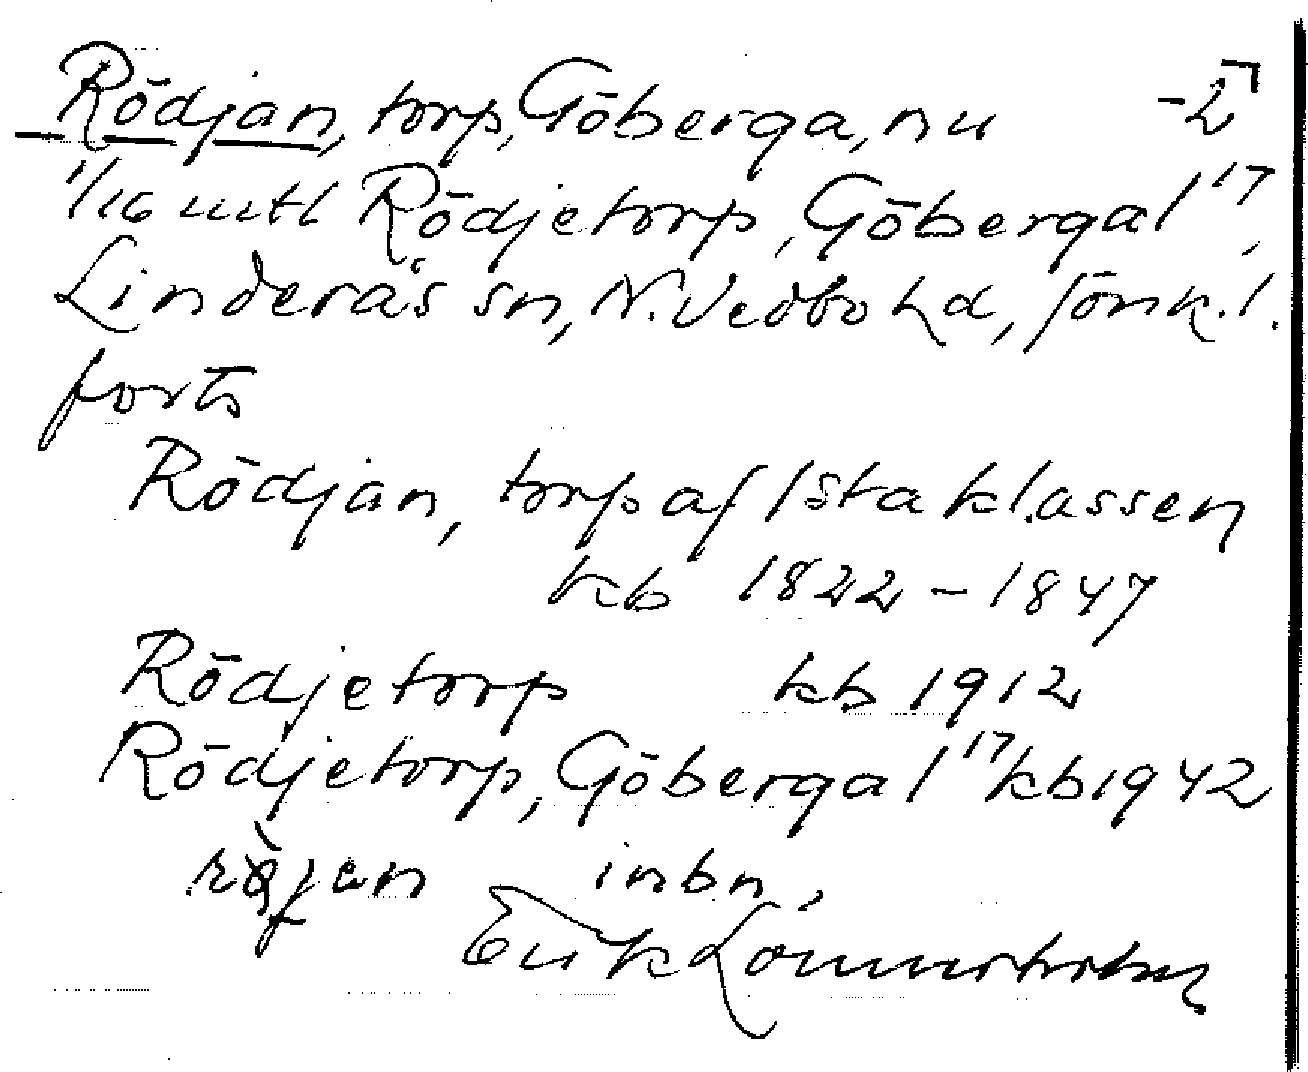 Rödjan, torp, Göberga, nu -2
1/16 mtl Rödjetorp, Göberga 1¹⁷,
Linderås sn, N. Vedbo hd, Jönk. l.
forts
Rödjan, torp af 1sta klassen
kb 1822-1847
Rödjetorp kb 1912
Rödjetorp, Göberga 1¹⁷ kb 1942
inbn,
Erik